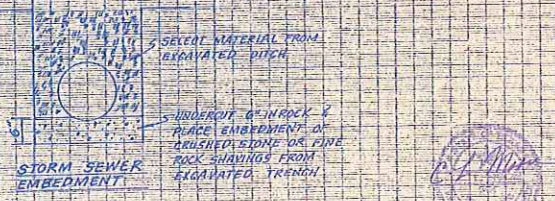 SELECT MATERIAL FROM
EXCAVATED DITCH
UNDERCUT 6" IN ROCK &
PLACE EMBEDMENT OF
CRUSHED STONE OR FINE
ROCK SHAVINGS FROM
EXCAVATED TRENCH
6"
STORM SEWER
EMBEDMENT